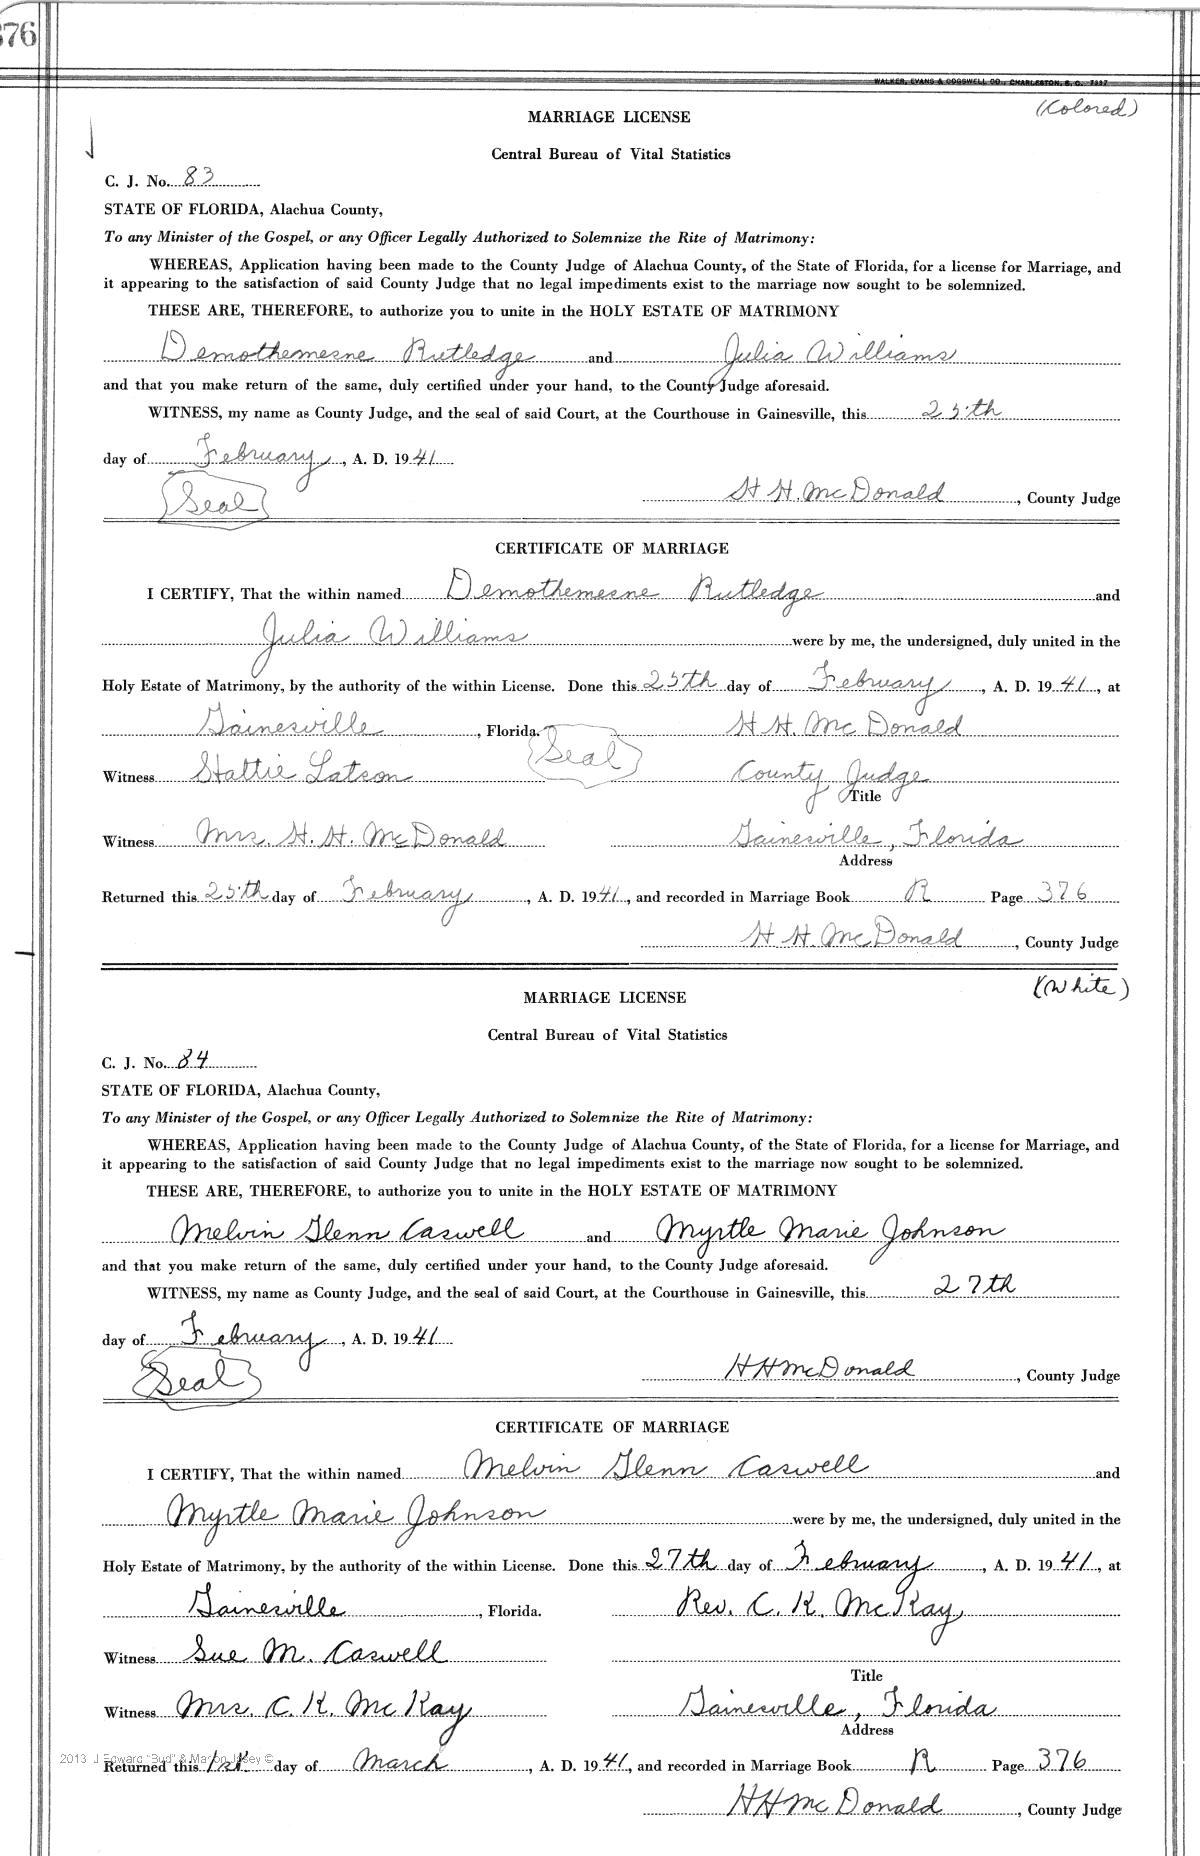 376
WALKER, EVANS & COGSWELL CO., CHARLESTON, S. C. 7337
(Colored)
MARRIAGE LICENSE
Central Bureau of Vital Statistics
C. J. No. 83
STATE OF FLORIDA, Alachua County,
To any Minister of the Gospel, or any Officer Legally Authorized to Solemnize the Rite of Matrimony:
WHEREAS, Application having been made to the County Judge of Alachua County, of the State of Florida, for a license for Marriage, and
it appearing to the satisfaction of said County Judge that no legal impediments exist to the marriage now sought to be solemnized.
THESE ARE, THEREFORE, to authorize you to unite in the HOLY ESTATE OF MATRIMONY
Demothemesne Rutledge and Julia Williams
and that you make return of the same, duly certified under your hand, to the County Judge aforesaid.
WITNESS, my name as County Judge, and the seal of said Court, at the Courthouse in Gainesville, this 25th
day of February, A. D. 1941
Seal
H. H. McDonald, County Judge
CERTIFICATE OF MARRIAGE
I CERTIFY, That the within named Demothemesne Rutledge and
Julia Williams were by me, the undersigned, duly united in the
Holy Estate of Matrimony, by the authority of the within License. Done this 25th day of February, A. D. 1941, at
Gainesville, Florida. Seal H. H. McDonald
Witness Hattie Latson County Judge
Title
Witness Mrs. H. H. McDonald Gainesville, Florida
Address
Returned this 25th day of February, A. D. 1941, and recorded in Marriage Book R Page 376
H. H. McDonald, County Judge
(White)
MARRIAGE LICENSE
Central Bureau of Vital Statistics
C. J. No. 84
STATE OF FLORIDA, Alachua County,
To any Minister of the Gospel, or any Officer Legally Authorized to Solemnize the Rite of Matrimony:
WHEREAS, Application having been made to the County Judge of Alachua County, of the State of Florida, for a license for Marriage, and
it appearing to the satisfaction of said County Judge that no legal impediments exist to the marriage now sought to be solemnized.
THESE ARE, THEREFORE, to authorize you to unite in the HOLY ESTATE OF MATRIMONY
Melvin Glenn Caswell and Myrtle Marie Johnson
and that you make return of the same, duly certified under your hand, to the County Judge aforesaid.
WITNESS, my name as County Judge, and the seal of said Court, at the Courthouse in Gainesville, this 27th
day of February, A. D. 1941
Seal
H H McDonald, County Judge
CERTIFICATE OF MARRIAGE
I CERTIFY, That the within named Melvin Glenn Caswell and
Myrtle Marie Johnson were by me, the undersigned, duly united in the
Holy Estate of Matrimony, by the authority of the within License. Done this 27th day of February, A. D. 1941, at
Gainesville, Florida. Rev. C. K. McKay
Witness Sue M. Caswell
Title
Witness Mrs. C. K. McKay Gainesville, Florida
Address
2013 J Edward "Bud" & Marion Josey ©
Returned this 1st day of March, A. D. 1941, and recorded in Marriage Book R Page 376
H H McDonald, County Judge